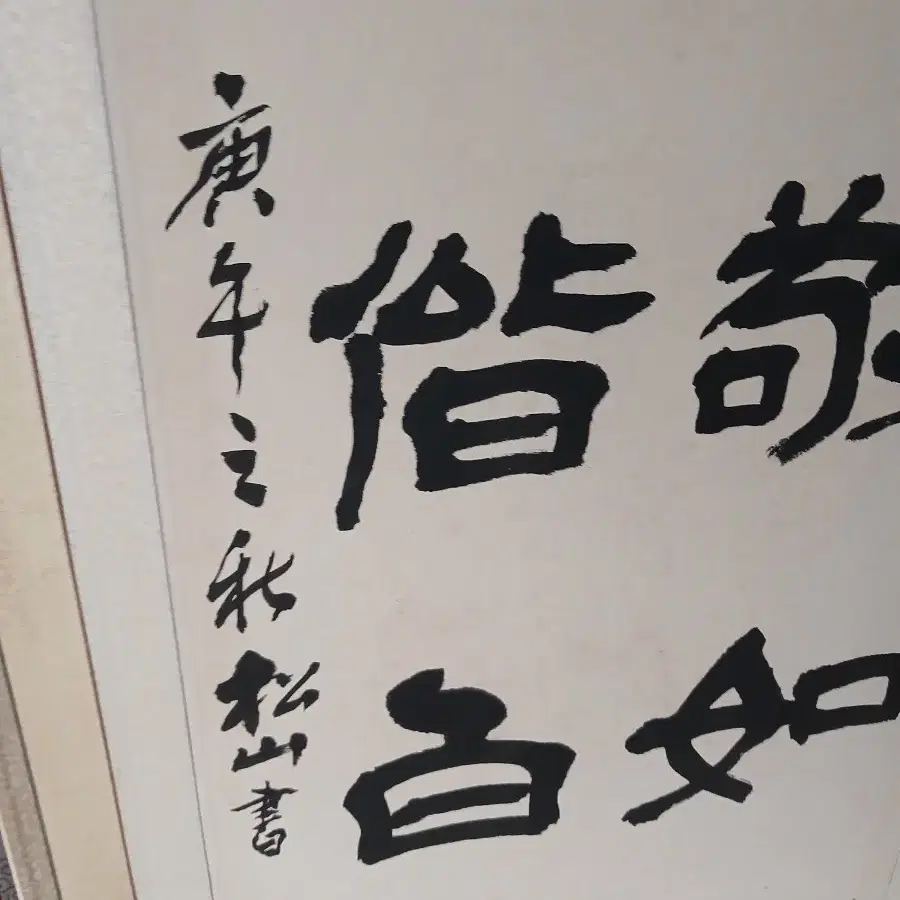 敬如
偕百
庚年之秋松山書